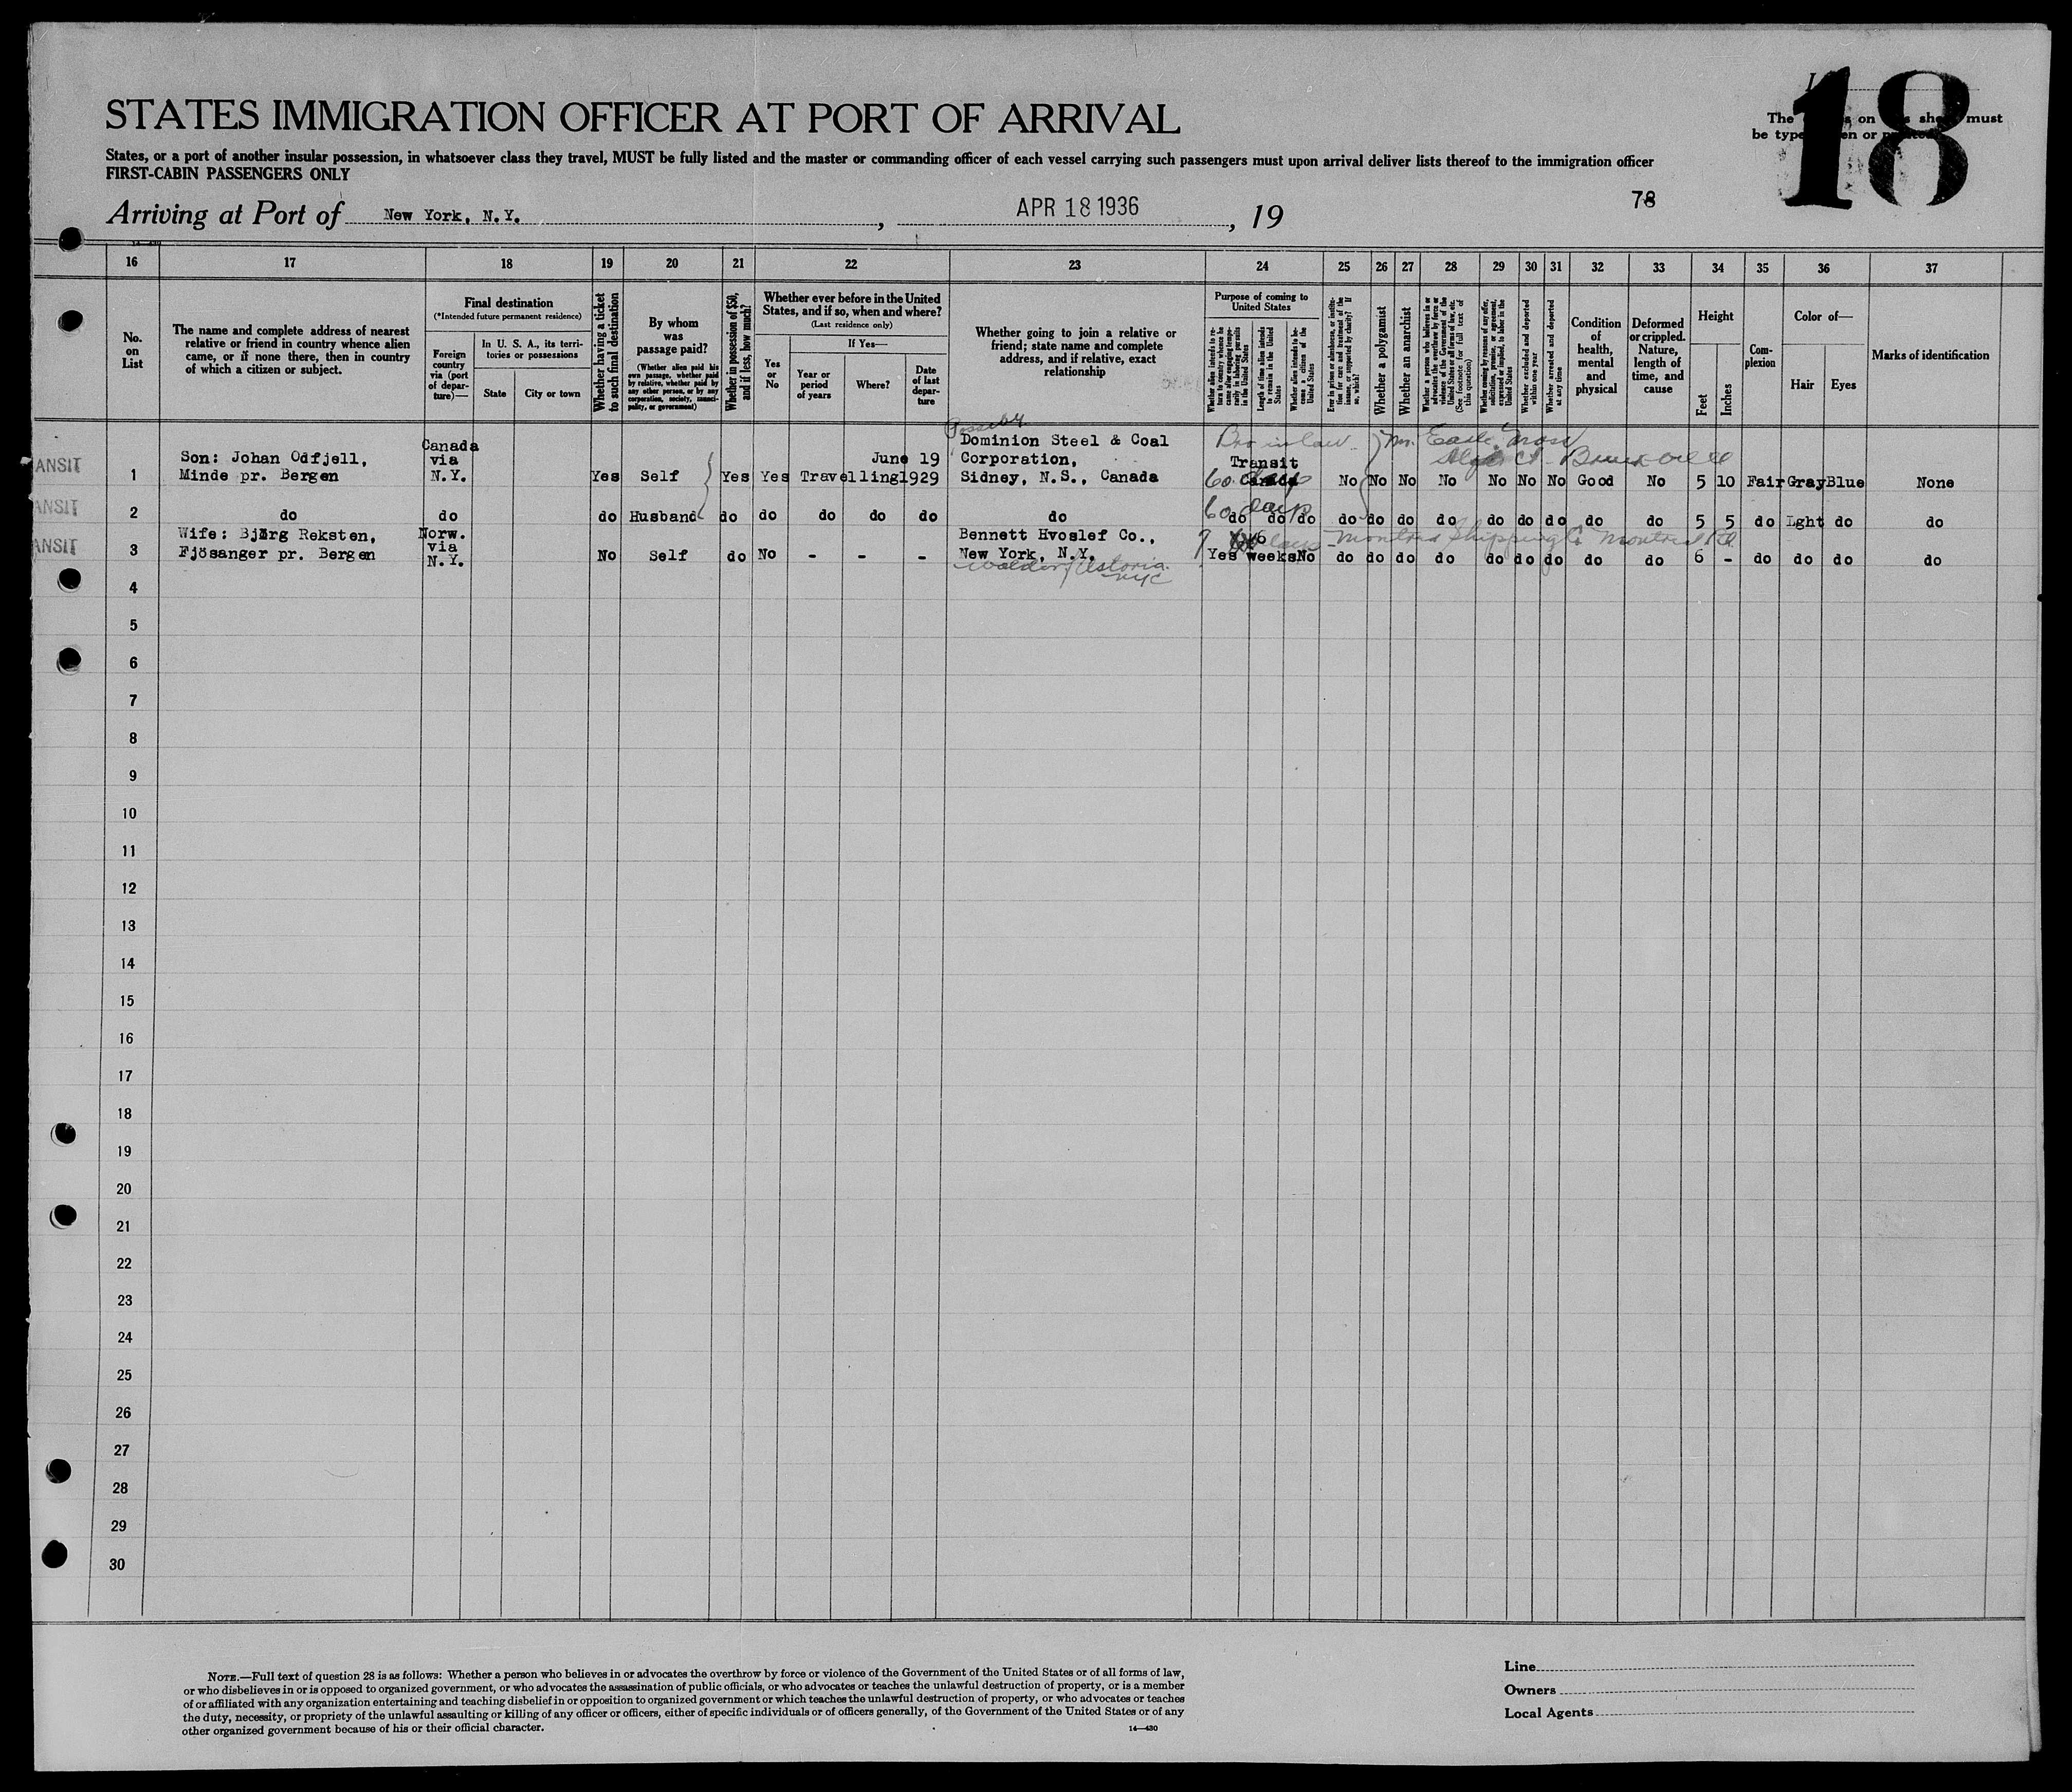 18
STATES IMMIGRATION OFFICER AT PORT OF ARRIVAL
The on must
be or
States, or a port of another insular possession, in whatsoever class they travel, MUST be fully listed and the master or commanding officer of each vessel carrying such passengers must upon arrival deliver lists thereof to the immigration officer
FIRST-CABIN PASSENGERS ONLY
Arriving at Port of New York, N.Y. , APR 18 1936 , 19
78
16 17 18 19 20 21 22 23 24 25 26 27 28 29 30 31 32 33 34 35 36 37
No. on List
The name and complete address of nearest relative or friend in country whence alien came, or if none there, then in country of which a citizen or subject.
Final destination
(*Intended future permanent residence)
Foreign country via (port of departure)—
In U. S. A., its territories or possessions
State
City or town
Whether having a ticket to such final destination
By whom was passage paid?
(Whether alien paid his own passage, whether paid by relative, whether paid by any other person, or by any corporation, society, municipality, or government)
Whether in possession of $50, and if less, how much?
Whether ever before in the United States, and if so, when and where?
(Last residence only)
Yes or No
If Yes—
Year or period of years
Where?
Date of last departure
Whether going to join a relative or friend; state name and complete address, and if relative, exact relationship
Purpose of coming to United States
Whether alien intends to return to country whence he came after engaging temporarily in laboring pursuits in the United States
Length of time alien intends to remain in the United States
Whether alien intends to become a citizen of the United States
Ever in prison or almshouse, or institution for care and treatment of the insane, or supported by charity? If so, which?
Whether a polygamist
Whether an anarchist
Whether a person who believes in or advocates the overthrow by force or violence of the Government of the United States or all forms of law, etc. (See footnote for full text of this question)
Whether coming by reasons of any offer, solicitation, promise, or agreement, expressed or implied, to labor in the United States
Whether excluded and deported within one year
Whether arrested and deported at any time
Condition of health, mental and physical
Deformed or crippled. Nature, length of time, and cause
Height
Feet
Inches
Complexion
Color of—
Hair
Eyes
Marks of identification
ANSIT
1 Son: Johan Odfjell, Minde pr. Bergen
Canada via N.Y.
Yes Self Yes Yes Travelling June 19 1929
Dominion Steel & Coal Corporation, Sidney, N.S., Canada
Bro in law Mr.
Transit
60 days
No No No No No No No Good No 5 10 Fair Gray Blue None
ANSIT
2 do do do Husband do do do do do do
60 days
do do do do do do do do do do do do 5 5 do Lght do do
ANSIT
3 Wife: Bjørg Reksten, Fjösanger pr. Bergen
Norw. via N.Y.
No Self do No - - -
Bennett Hvoslef Co., New York, N.Y.
Waldorf Astoria NYC
Montreal Shipping Co Montreal
Yes weeks No do do do do do do do do do 6 - do do do do
4
5
6
7
8
9
10
11
12
13
14
15
16
17
18
19
20
21
22
23
24
25
26
27
28
29
30
NOTE.—Full text of question 28 is as follows: Whether a person who believes in or advocates the overthrow by force or violence of the Government of the United States or of all forms of law,
or who disbelieves in or is opposed to organized government, or who advocates the assassination of public officials, or who advocates or teaches the unlawful destruction of property, or is a member
of or affiliated with any organization entertaining and teaching disbelief in or opposition to organized government or which teaches the unlawful destruction of property, or who advocates or teaches
the duty, necessity, or propriety of the unlawful assaulting or killing of any officer or officers, either of specific individuals or of officers generally, of the Government of the United States or of any
other organized government because of his or their official character.
14—430
Line
Owners
Local Agents